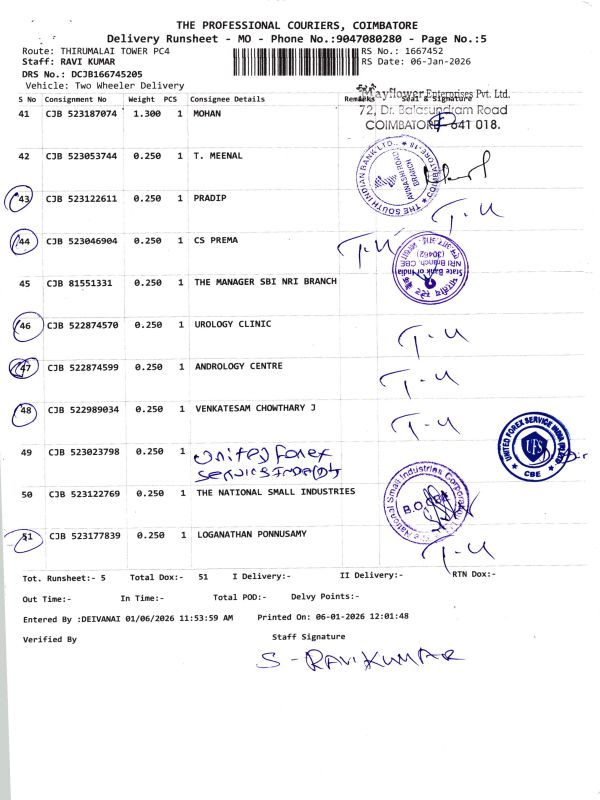 THE PROFESSIONAL COURIERS, COIMBATORE
Delivery Runsheet - MO - Phone No.:9047080280 - Page No.:5
Route: THIRUMALAI TOWER PC4
RS No.: 1667452
Staff: RAVI KUMAR
RS Date: 06-Jan-2026
DRS No.: DCJB166745205
Vehicle: Two Wheeler Delivery
S No Consignment No Weight PCS Consignee Details Remarks Seal & Signature
Mayflower Enterprises Pvt. Ltd.
72, Dr. Balasundram Road
COIMBATORE - 641 018.
41 CJB 523187074 1.300 1 MOHAN
42 CJB 523053744 0.250 1 T. MEENAL
THE SOUTH INDIAN BANK LTD., COIMBATORE-18
AVINASHI ROAD
BRANCH
43 CJB 523122611 0.250 1 PRADIP
T-U
44 CJB 523046904 0.250 1 CS PREMA
T-U
State Bank of India
NRI Branch, CBE
(30462)
45 CJB 81551331 0.250 1 THE MANAGER SBI NRI BRANCH
46 CJB 522874570 0.250 1 UROLOGY CLINIC
T-U
47 CJB 522874599 0.250 1 ANDROLOGY CENTRE
T-U
48 CJB 522989034 0.250 1 VENKATESAM CHOWTHARY J
T-U
49 CJB 523023798 0.250 1 United Forex
UNITED FOREX SERVICE INDIA (P) LTD
UFS
CBE
50 CJB 523122769 0.250 1 THE NATIONAL SMALL INDUSTRIES
The National Small Industries Corporation
B.O. CBE
51 CJB 523177839 0.250 1 LOGANATHAN PONNUSAMY
T-U
Tot. Runsheet:- 5 Total Dox:- 51 I Delivery:- II Delivery:- RTN Dox:-
Out Time:- In Time:- Total POD:- Delvy Points:-
Entered By :DEIVANAI 01/06/2026 11:53:59 AM Printed On: 06-01-2026 12:01:48
Verified By Staff Signature
S-RAVIKUMAR